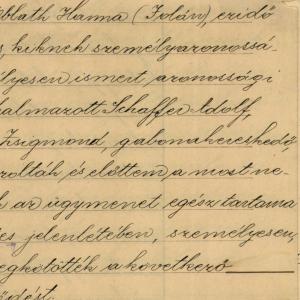 blath Hanna (Jolán), eridő
s, kiknek személyazonossá-
lyesen ismert azonossági
halmazott Schaffer Adolf,
Zsigmond, gabonakereskedő,
rolták és előttem a most ne-
k az ügymenet egész tartama
es jelenletében, személyesen,
egkötötték a következő
ződést.